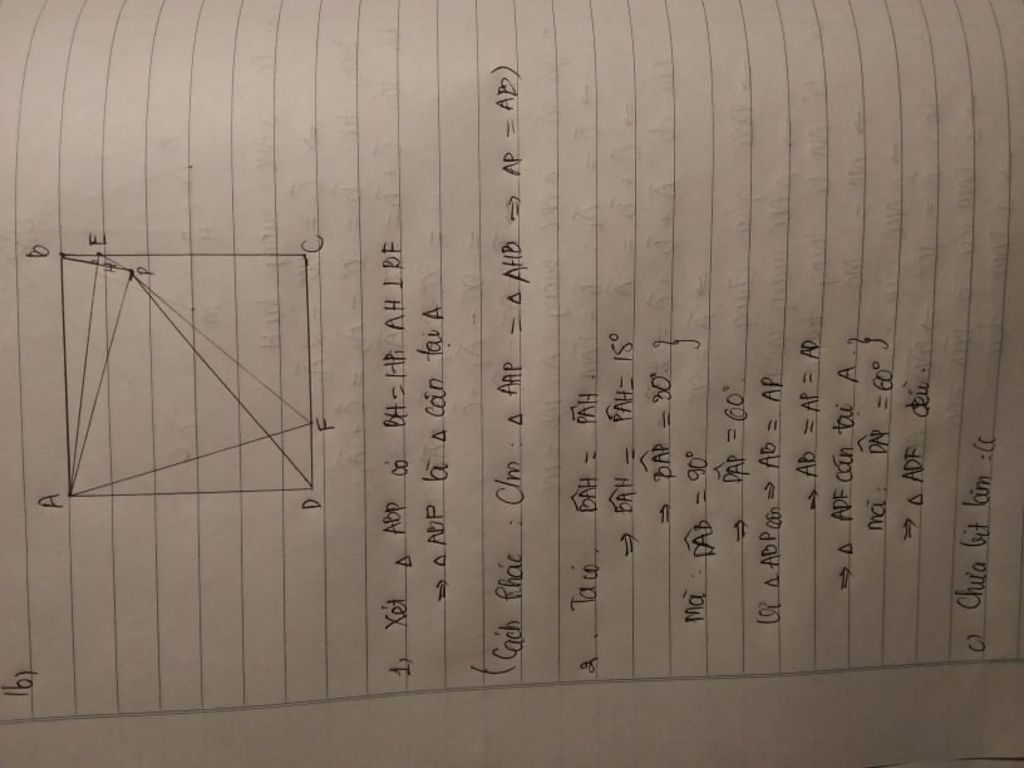 b)
A
B
E
H
P
D
F
C
1, Xét Δ ABP có BH = HP; AH ⊥ BP
⇒ Δ ABP là Δ cân tại A
(Cách khác: C/m: Δ AHP = Δ AHB ⇒ AP = AB)
2, Ta có: BÂH = PÂH
⇒ BÂH = PÂH = 15°
⇒ BÂP = 30° }
mà: DÂB = 90° }
⇒ DÂP = 60°
Vì Δ ABP cân ⇒ AB = AP
⇒ AB = AP = AD
⇒ Δ ADF cân tại A }
mà: DÂP = 60° }
⇒ Δ ADF đều.
c) Chưa bít làm :((